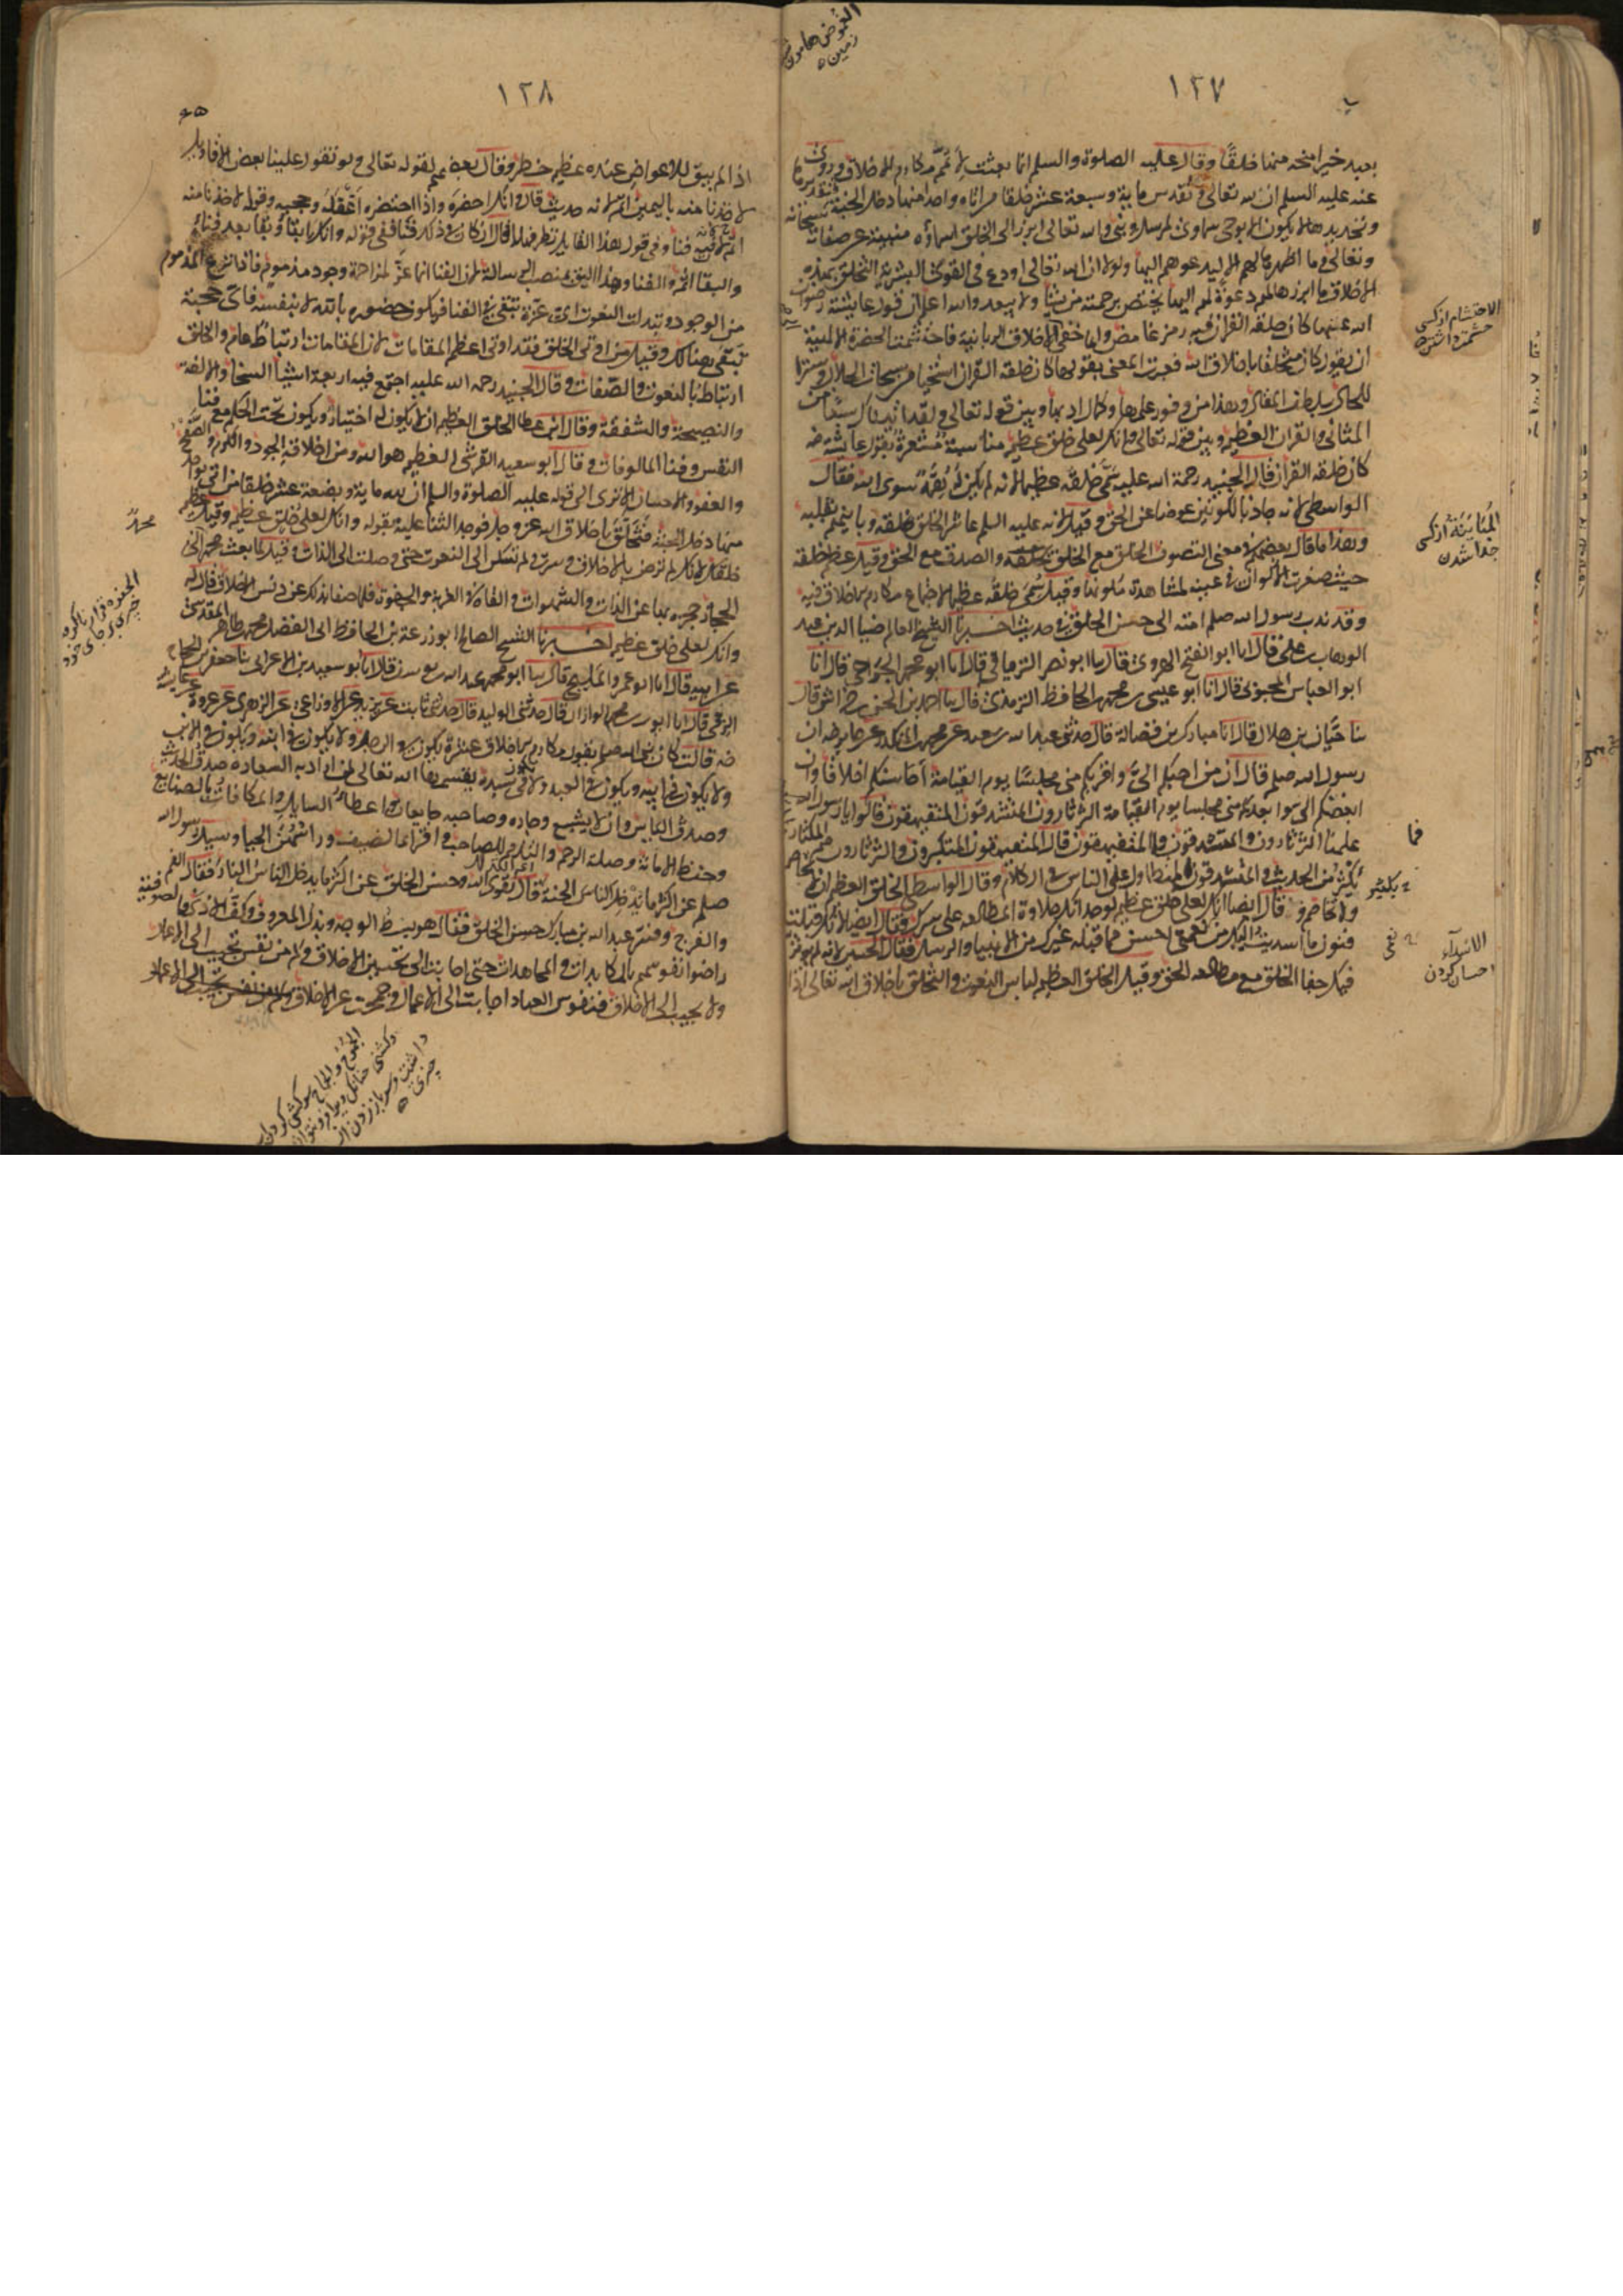 ١٢٧
بعبد خيرا منحه منها خلقا وقال عليه الصلوة والسلم انما بعثت لاتمم مكارم الاخلاق وروى
عنه عليه السلم ان لله تعالى وتقدس ماية وسبعة عشر خلقا من اتاه واحدا منها دخل الجنة فتقديرها
وتحديدها لا يكون الا بوحى سماوى لمرسل ونبى والله تعالى ابرز الى الخلق اسماؤه منبية عن صفاته سبحانه
وتعالى وما اظهرها لهم الا ليدعوهم اليها ولولا ان الله تعالى اودع فى القوى البشرية التخلق بهذه
الاخلاق ما ابرزها لهم دعوة لهم اليها يختص برحمته من يشا ولا يبعد والله اعلم ان قول عايشة رضوان
الله عنها كان خلقه القران فيه رمز غامض وايما خفى الى الاخلاق الربانية فاحتشمت الحضرة الالهية
ان يقول كان متخلقا باخلاق الله فعبرت المعنى بقولها كان خلقه القران استحيا من سبحات الجلال وسترا
للحال بلطف المقال وهذا من وفور علمها وكمال ادبها وبين قوله تعالى ولقد اتيناك سبعا من
المثانى والقران العظيم وبين قوله تعالى وانك لعلى خلق عظيم مناسبة مشعرة بقول عايشة رضه
كان خلقه القران قال الجنيد رحمة الله عليه سمى خلقه عظيما لانه لم يكن له همة سوى الله فقال
الواسطى لانه جاد بالكونين عوضا عن الحق وقيل لانه عليه السلم عاشر الخلق بخلقه وباينهم بقلبه
وهذا ما قال بعضهم فى معنى التصوف الخلق مع الخلق والصدق مع الحق وقيل عظم خلقه
حيث صغرت الاكوان فى عينه لمشاهدة مكونها وقيل سمى خلقه عظيما لاجتماع مكارم الاخلاق فيه
وقد ندب رسول الله صلعم امته الى حسن الخلق فى حديث اخبرنا الشيخ العالم ضيا الدين عبد
الوهاب بن على قال انا ابو الفتح الهروى قال انا ابو نصر الترياقى قال انا ابو محمد الجراحى قال انا
ابو العباس المحبوبى قال انا ابو عيسى محمد الحافظ الترمذى قال نا احمد بن الحسن بن خراش قال
نا حبان بن هلال قال انا مبارك بن فضالة قال حدثنى عبد الله بن سعيد عن محمد بن المنكدر عن جابر رضه ان
رسول الله صلعم قال ان من احبكم الى واقربكم منى مجلسا يوم القيامة احاسنكم اخلاقا وان
ابغضكم الى وابعدكم منى مجلسا يوم القيامة الثرثارون المتشدقون المتفيهقون قالوا يا رسول الله
علمنا الثرثارون والمتشدقون فما المتفيهقون قال المتكبرون والثرثارون هم المكثار
يكثر من الحديث والمتشدقون المتطاول على الناس فى الكلام وقال الواسطى الخلق العظيم ان لا يخاصم
ولا يخاصم وقال ايضا وانك لعلى خلق عظيم لوجدانك حلاوة المطالعة على سرك وقال ايضا لانك قبلت
فنون ما اسديت اليك من نعمى احسن مما قبله غيرك من الانبيا والرسل فقال الحسين لانه لم يوثر
فيك جفا الخلق مع مطالعة الحق وقيل الخلق العظيم لباس التقوى والتخلق باخلاق الله تعالى اذ
الاحتشام از كسى
حشمت داشتن
المباينة از كسى
جدا شدن
فما
يكثر
الاسداء
احسان كردن
١٢٨
اذ لم يبق للاعواض عنده عظيم خطر وقال بعضهم لقوله تعالى ولو تقول علينا بعض الاقاويل
لاخذنا منه باليمين اتم لانه حيث قال وانك احضره واذا احضره اغفله وحجبه وقوله لاخذنا منه
اتم لان فيه فنا وفى قول هذا القايل نظر فهلا قال ان كان فى ذلك فنا ففى قوله وانك بقا وبقا بعد فنا
والبقا اتم من الفنا وهذا اليق بمنصب الرسالة لان الفنا انما عز لمزاحمة وجود مذموم فاذا نزع المذموم
من الوجود وتبدلت النعوت اى عزة تبقى فى الفنا فيكون حضوره بالله لا بنفسه فاى حجبة
تبقى هنالك وقيل من اوتى الخلق فقد اوتى اعظم المقامات لان للمقامات ارتباط عام والخلق
ارتباط بالنعوت والصفات وقال الجنيد رحمة الله عليه اجتمع فيه اربعة اشيا السخا والالفة
والنصيحة والشفقة وقال ابن عطا الخلق العظيم ان لا يكون له اختيار ويكون تحت الحكم مع فنا
النفس وفنا المالوفات وقال ابو سعيد القرشى العظيم هو الله ومن اخلاقه الجود والكرم والصفح
والعفو والاحسان الا ترى الى قوله عليه الصلوة والسلم ان لله ماية وبضعة عشر خلقا من اتى بواحد
منها دخل الجنة فتخلق باخلاق الله عز وجل فوجد الثنا عليه بقوله وانك لعلى خلق عظيم وقيل عظم
خلقك لانك لم ترض بالاخلاق وسرت ولم تسكن الى النعوت حتى وصلت الى الذات وقيل لما بعث محمد الى
الحجاز حجزه بها عن اللذات والشهوات والقاه فى الغربة والجفوة فلما صفا بذلك عن دنس الاخلاق قال له
وانك لعلى خلق عظيم اخبرنا الشيخ الصالح ابو زرعة بن الحافظ ابى الفضل محمد بن طاهر المقدسى
عن ابيه قال انا ابو عمر المليحى قال نا ابو محمد عبد الله بن يوسف قال انا ابو سعيد بن الاعرابى نا جعفر بن الحجاج
الرقى قال انا ايوب بن محمد الوزان قال حدثنى الوليد قال حدثنى ثابت عن يزيد عن الاوزاعى عن الزهرى عن عروة عن عايشة
رضه قالت كان نبى الله صلعم يقول مكارم الاخلاق عشرة يكون فى الرجل ولا يكون فى ابنه ويكون فى الابن
ولا يكون فى ابيه ويكون فى العبد ولا يكون فى سيده يقسمها الله تعالى لمن اراد به السعادة صدق الحديث
وصدق الباس وان لا يشبع وجاره وصاحبه جايعان واعطاء السايل والمكافات بالصنايع
وحفظ الامانة وصلة الرحم والتذمم للصاحب واقراء الضيف وراسهن الحيا وسيل رسول الله
صلعم عن اكثر ما يدخل الناس الجنة قال تقوى الله وحسن الخلق وسيل عن اكثر ما يدخل الناس النار فقال الفم
والفرج وفسر عبد الله بن مبارك حسن الخلق فقال هو بسط الوجه وبذل المعروف وكف الاذى فالصوفية
راضوا نفوسهم بالمكابدات والمجاهدات حتى اجابت الى تحسين الاخلاق وكم من نفس تجيب الى الاعمال
ولا تجيب الى الاخلاق فنفوس العباد اجابت الى الاعمال وجمحت عن الاخلاق
محمد